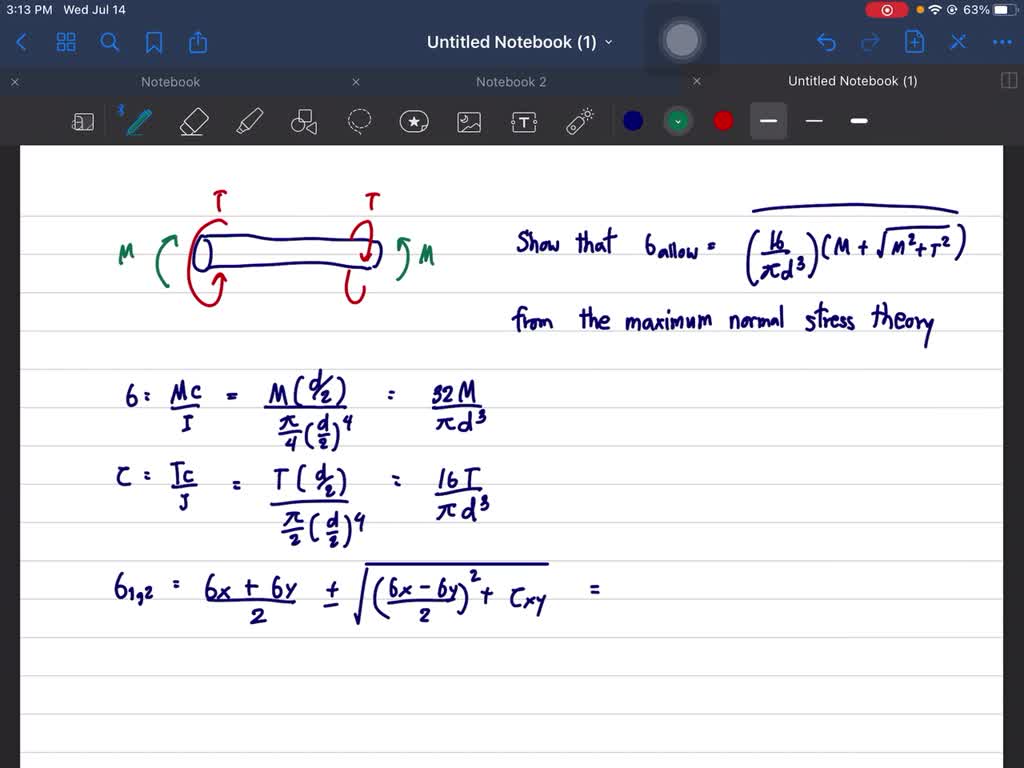 3:13 PM Wed Jul 14
63%
Untitled Notebook (1)
Notebook
Notebook 2
Untitled Notebook (1)
T T
M M
Show that σallow = (16/πd³)(M + √M²+T²)
from the maximum normal stress theory
σ = Mc/I = M(d/2)/π/4(d/2)⁴ = 32M/πd³
τ = Tc/J = T(d/2)/π/2(d/2)⁴ = 16T/πd³
σ1,2 = σx + σy/2 ± √(σx - σy/2)² + τxy =